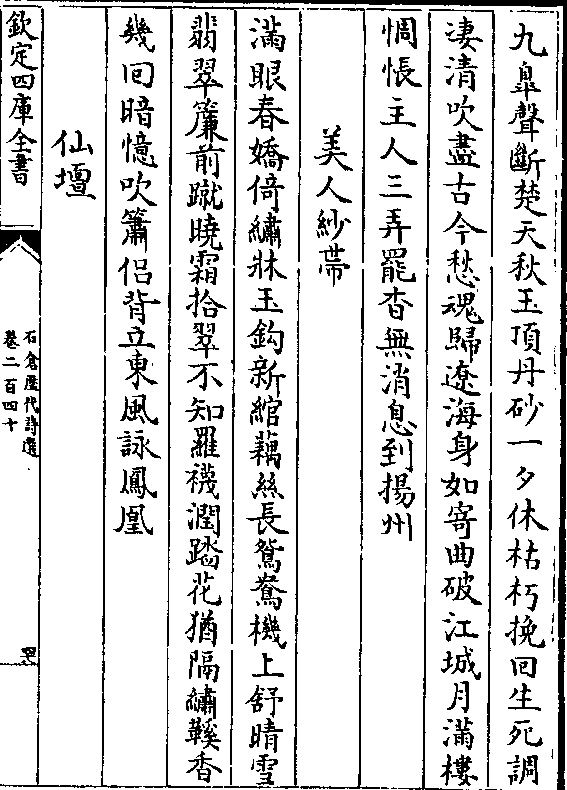 九臯聲斷楚天秋玉頂丹砂一夕休枯朽挽回生死調
淒清吹盡古今愁魂歸遼海身如寄曲破江城月滿樓
惆悵主人三弄罷杳無消息到揚州
美人紗帶
滿眼春嬌倚繡牀玉鈎新綰藕絲長鴛鴦機上舒晴雪
翡翠簾前蹴曉霜拾翠不知羅襪潤踏花猶隔繡鞵香
幾回暗憶吹簫侣背立東風詠鳳凰
仙壇
欽定四庫全書
石倉歷代詩選
卷二百四十